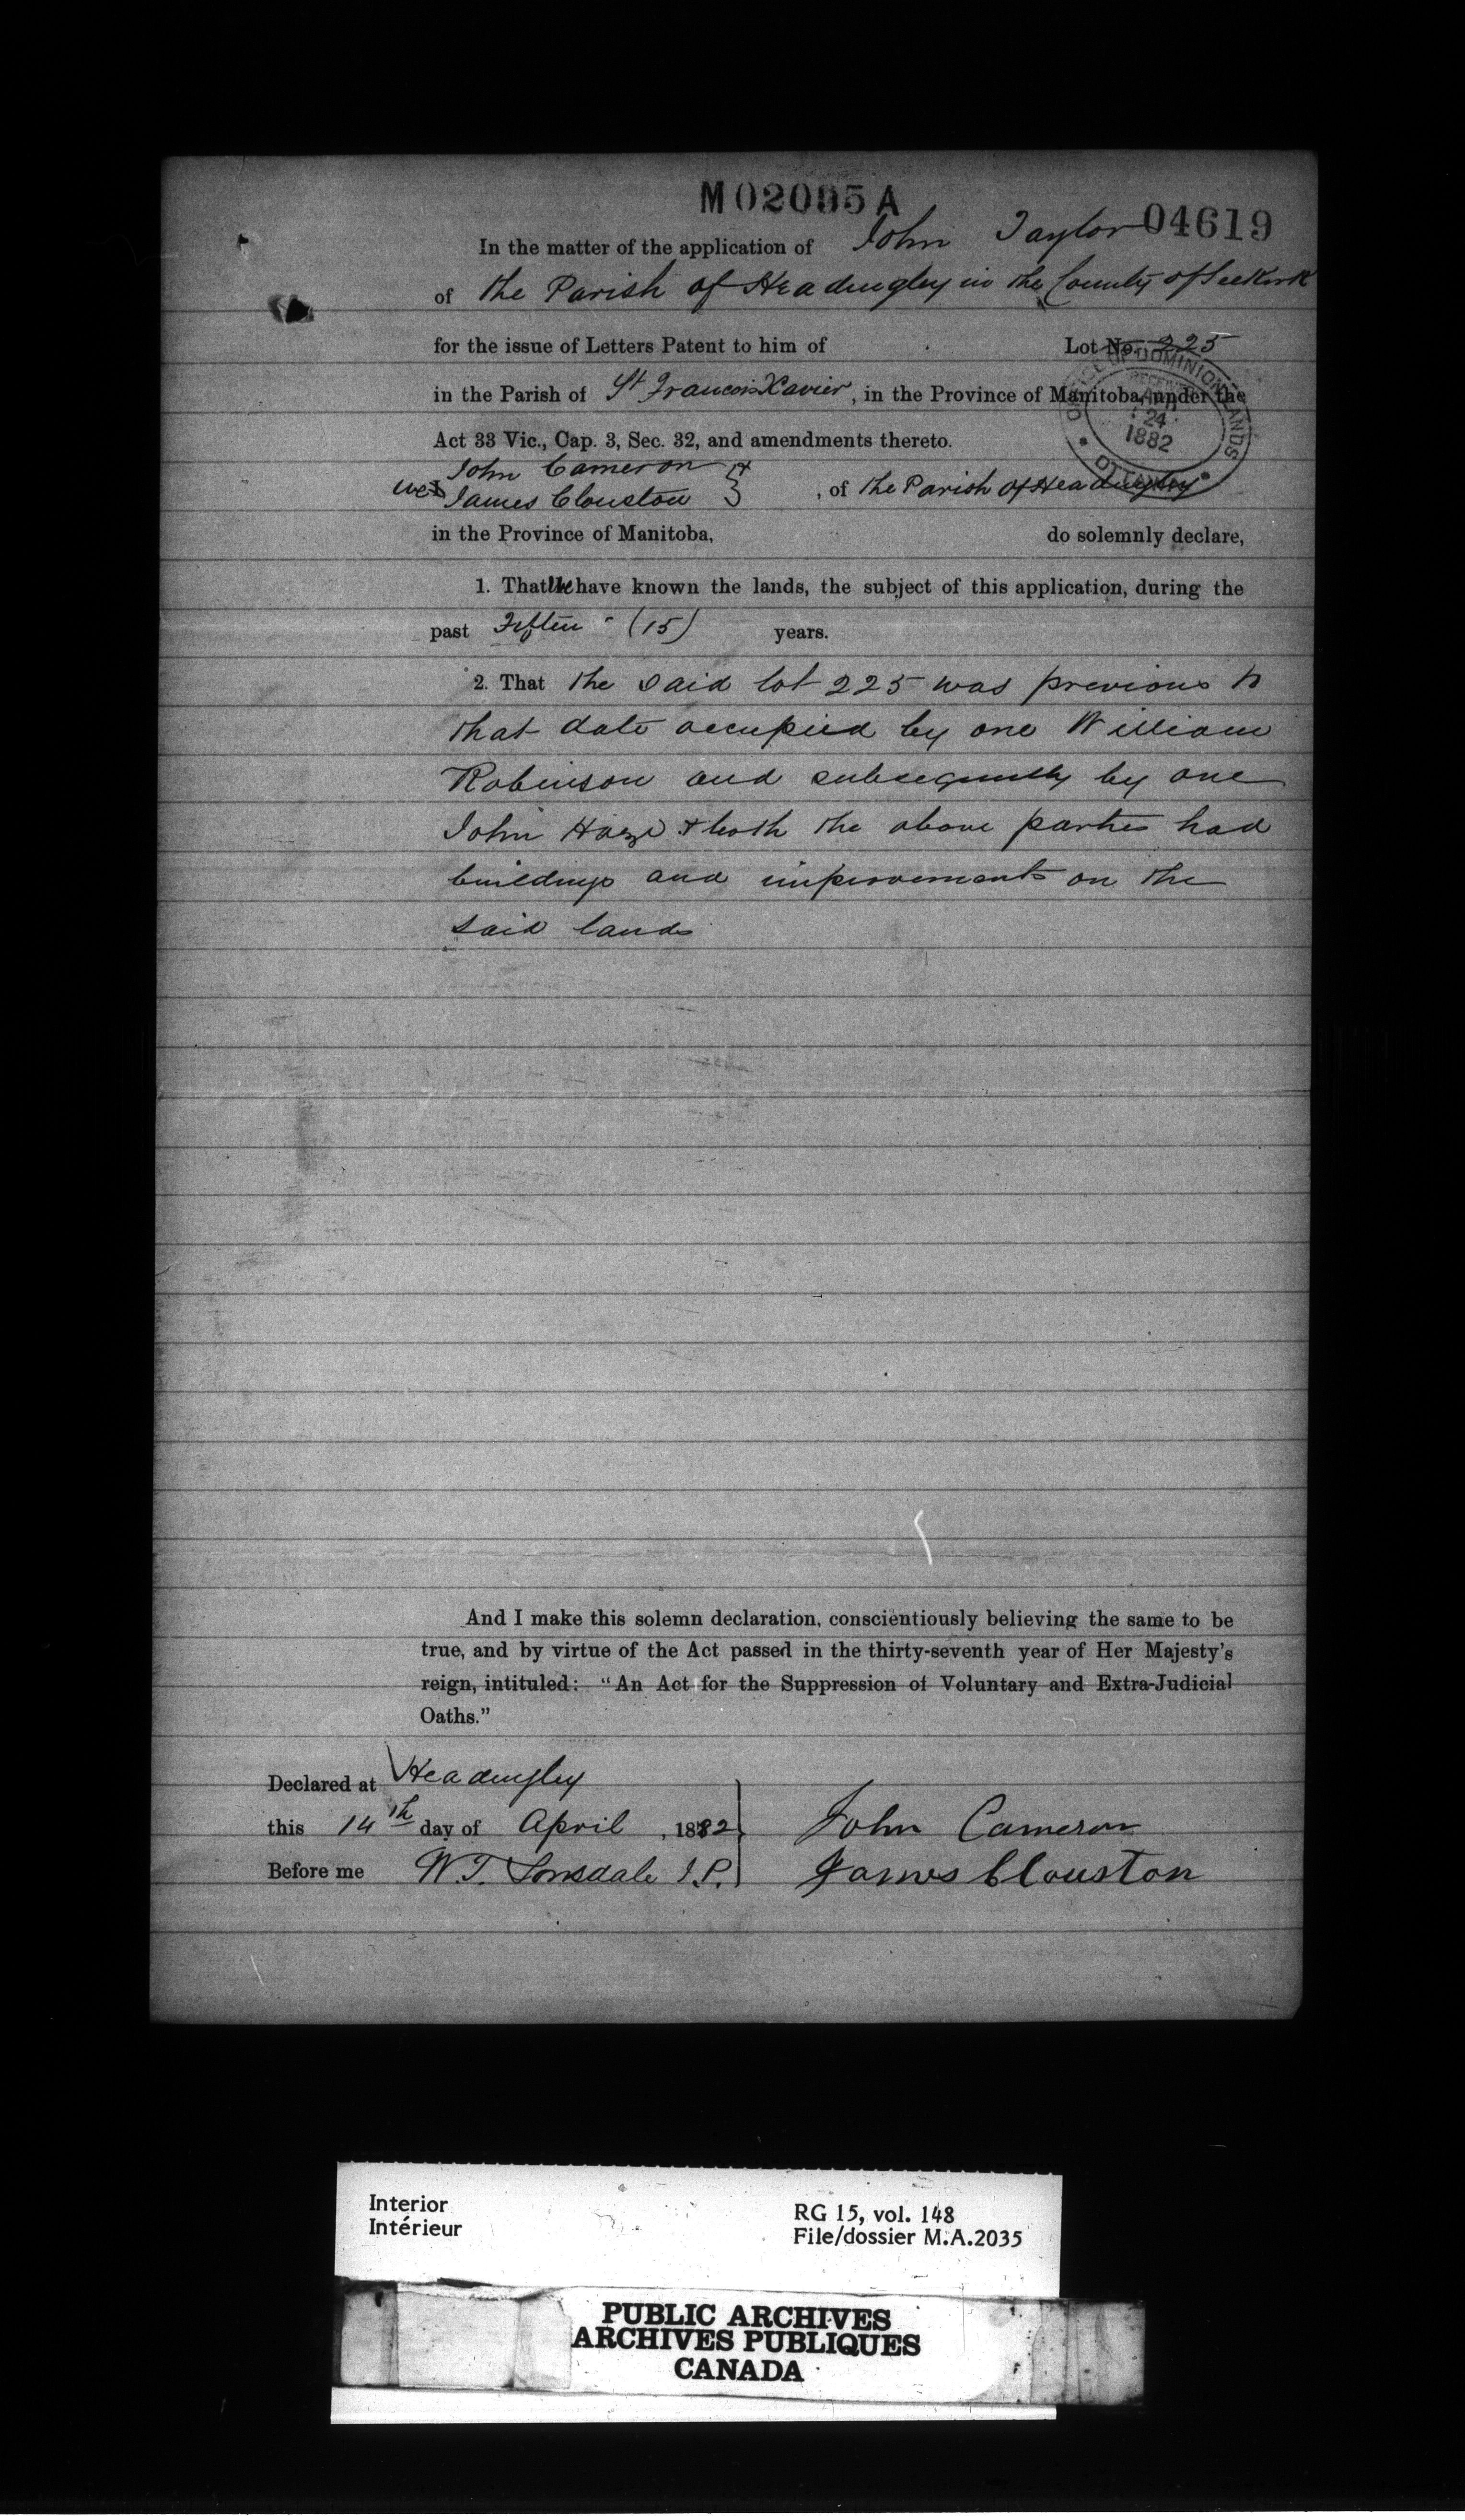 M02035A
04619
In the matter of the application of John Taylor
of the Parish of Headingley in the County of Selkirk
for the issue of Letters Patent to him of Lot No. 225
in the Parish of St Francois Xavier, in the Province of Manitoba, under the
Act 33 Vic., Cap. 3, Sec. 32, and amendments thereto.
OFFICE OF DOMINION LANDS
RECEIVED
24
1882
OTTAWA
John Cameron &
We James Clouston } , of the Parish of Headingley
in the Province of Manitoba, do solemnly declare,
1. That We have known the lands, the subject of this application, during the
past Fifteen (15) years.
2. That the said lot 225 was previous to
that date occupied by one William
Robinson and subsequently by one
John Haze & both the above parties had
buildings and improvements on the
said lands
And I make this solemn declaration, conscientiously believing the same to be
true, and by virtue of the Act passed in the thirty-seventh year of Her Majesty's
reign, intituled: "An Act for the Suppression of Voluntary and Extra-Judicial
Oaths."
Declared at Headingley
this 14th day of April, 1882 John Cameron
Before me W. T. Lonsdale J.P. James Clouston
Interior
Intérieur
RG 15, vol. 148
File/dossier M.A.2035
PUBLIC ARCHIVES
ARCHIVES PUBLIQUES
CANADA